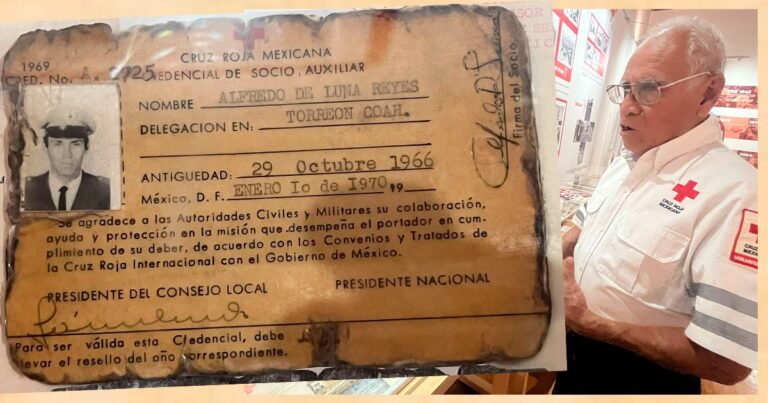 1969
CRUZ ROJA MEXICANA
CRED. No. A. 3725
CREDENCIAL DE SOCIO, AUXILIAR
NOMBRE ALFREDO DE LUNA REYES
DELEGACION EN: TORREON COAH.
ANTIGUEDAD: 29 Octubre 1966
México, D. F. ENERO 1o de 1970 19
Se agradece a las Autoridades Civiles y Militares su colaboración,
ayuda y protección en la misión que desempeña el portador en cum-
plimiento de su deber, de acuerdo con los Convenios y Tratados de
la Cruz Roja Internacional con el Gobierno de México.
PRESIDENTE DEL CONSEJO LOCAL
PRESIDENTE NACIONAL
Para ser válida esta Credencial, debe
llevar el resello del año correspondiente.
Firma del Socio
CRUZ ROJA
MEXICANA
CRUZ ROJA
MEXICANA